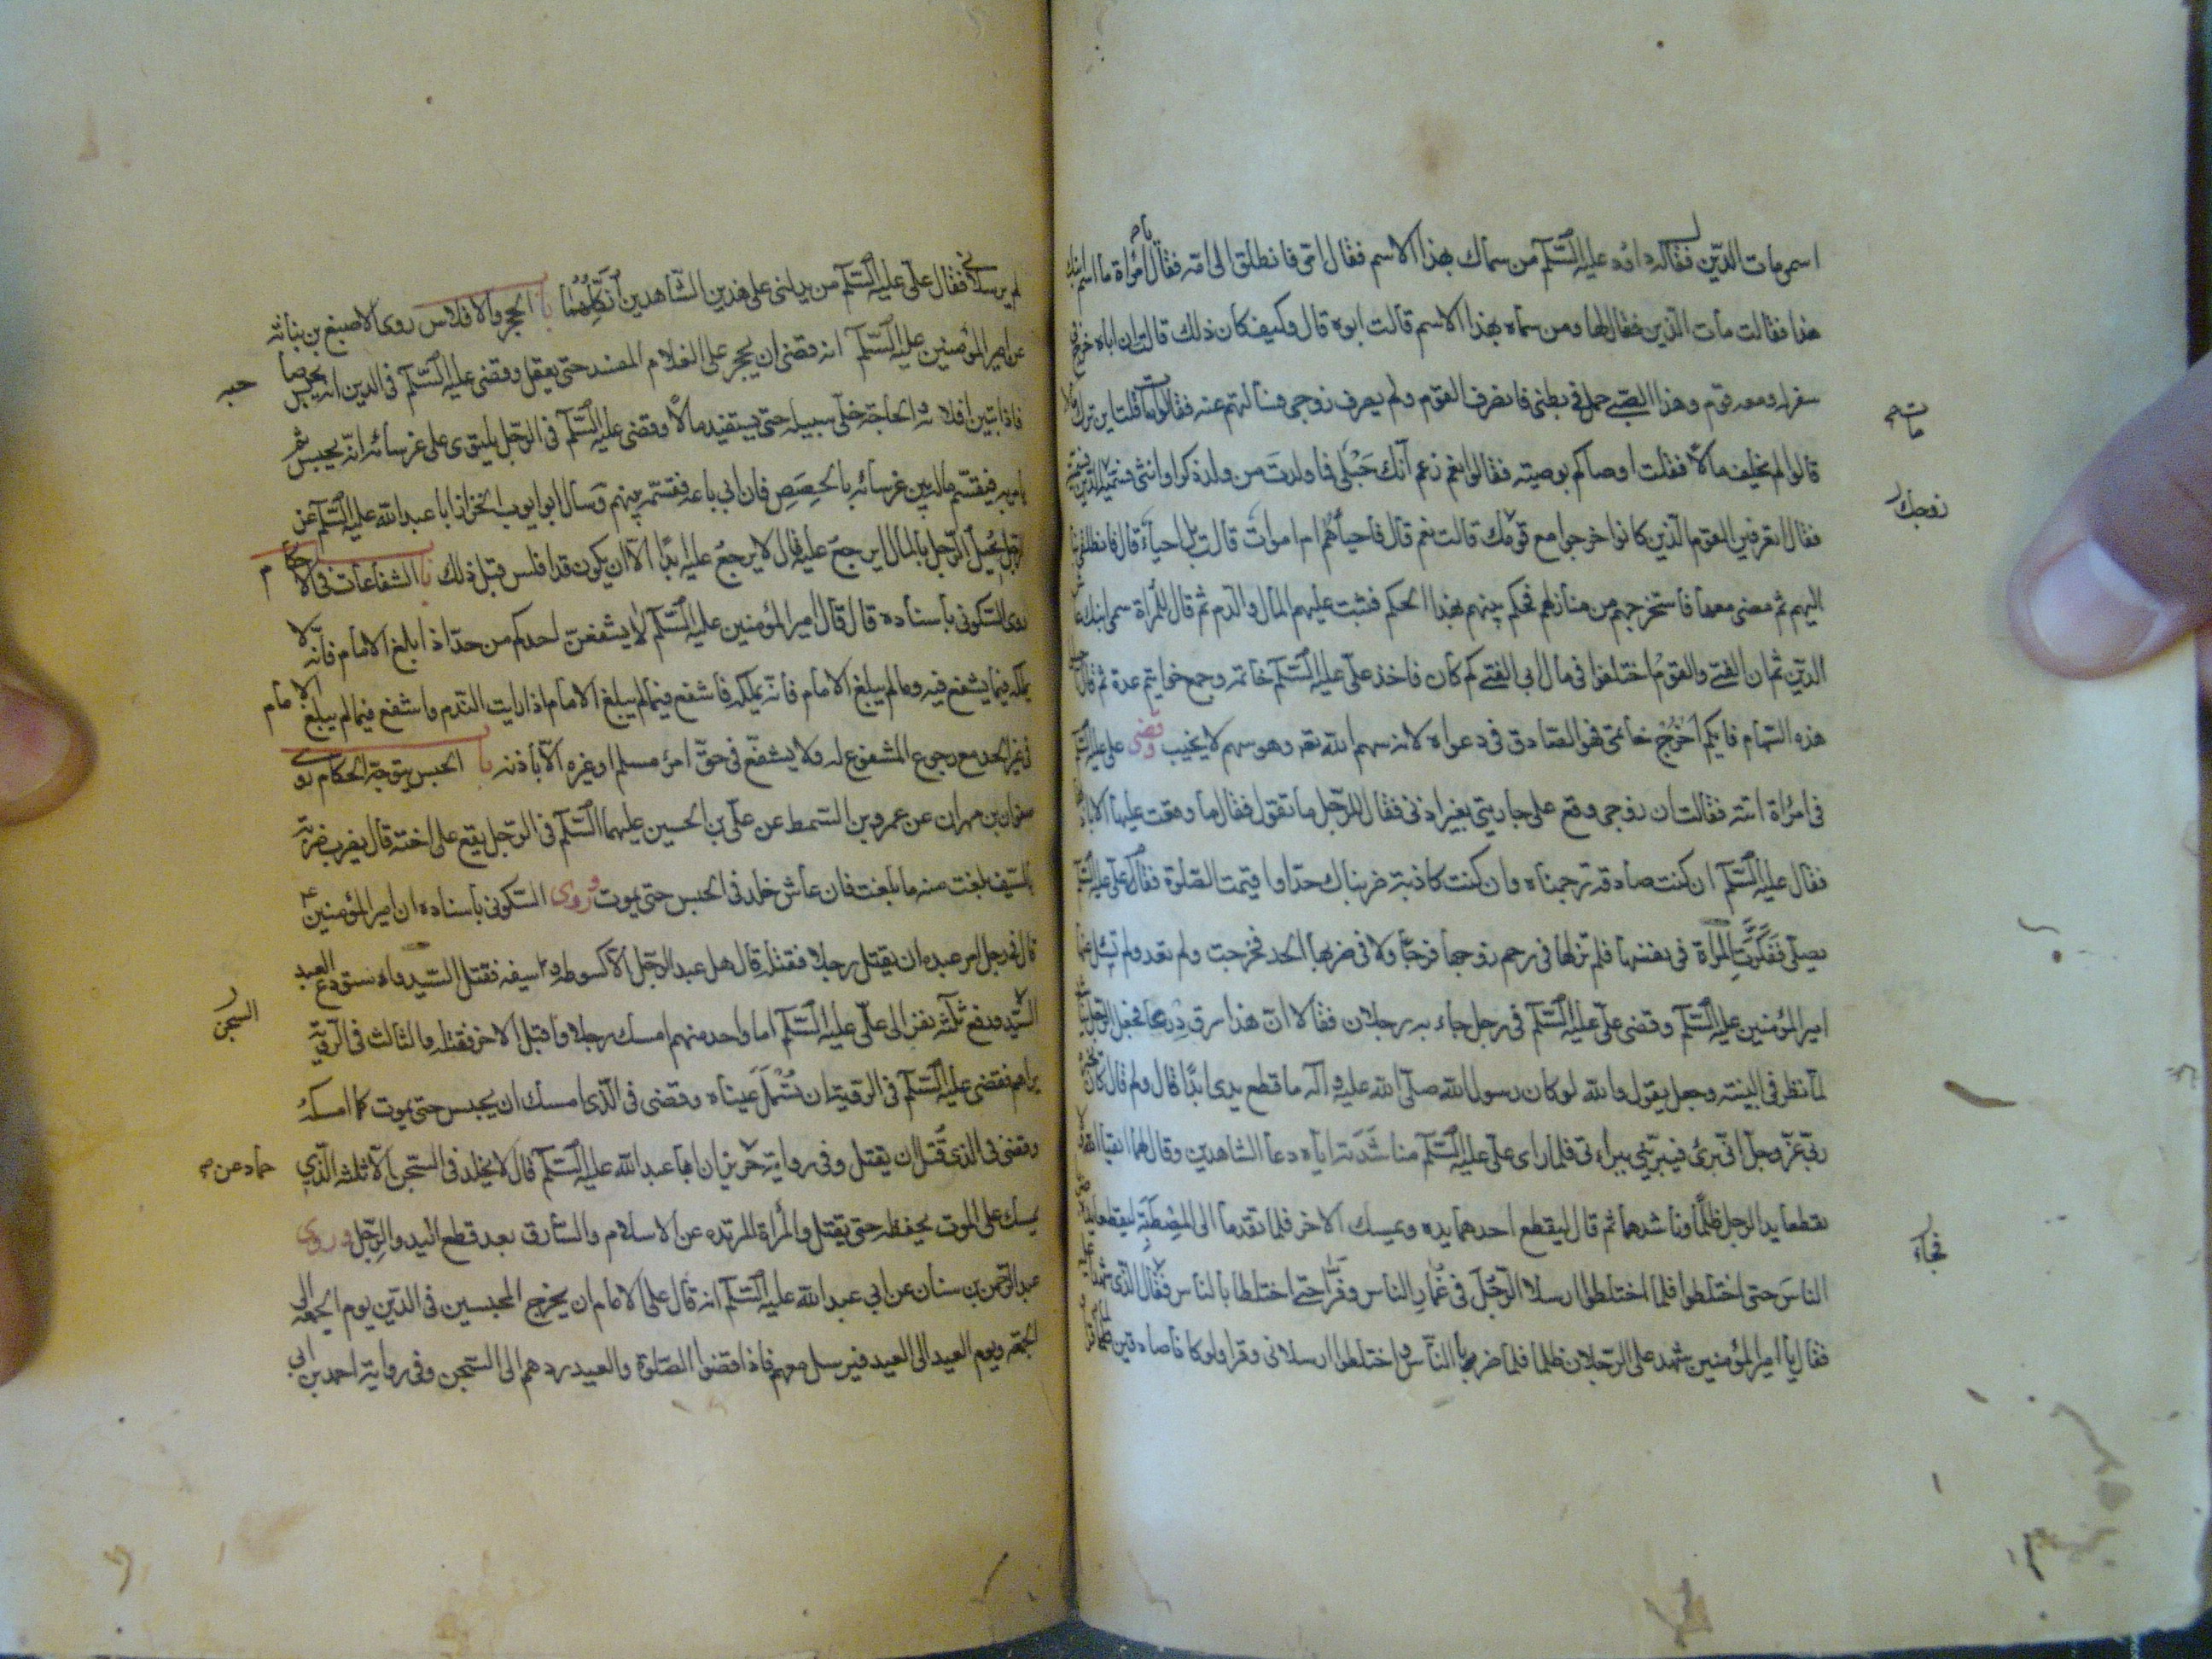 اسمى مات الدين فقال له داود عليه السلم من سماك بهذا الاسم فقال امى فانطلق الى امه فقال يا امراة ما اسم ابنك
هذا فقالت مات الدين فقال لها ومن سماه بهذا الاسم قالت ابوه قال وكيف كان ذلك قالت ان اباه خرج فى
سفر له ومعه قوم وهذا الصبى حمل فى بطنى فانصرف القوم ولم ينصرف زوجى فسألتهم عنه فقالوا مات قلت اين ترك مالا
قالوا لم يخلف مالا فقلت اوصاكم بوصية فقالوا نعم زعم انك حبلى فما ولدت من ولد ذكر او انثى فسميه مات الدين
فقال اتعرفين القوم الذين كانوا خرجوا مع قومك قالت نعم قال فاحياء هم ام اموات قالت بل احياء قال فانطلقى بنا
اليهم ثم مضى معها فاستخرجهم من منازلهم فحكم بينهم بهذا الحكم فثبت عليهم المال والدم ثم قال للمراة سمى ابنك عاش
الدين ثم ان الفتى والقوم اختلفوا فى مال ابى الفتى كم كان فاخذ على عليه السلم خاتمه وجمع خواتيم عدة ثم قال
هذه السهام فايكم اخرج خاتمى فهو الصادق فى دعواه لانه سهم الله تعه وهو سهم لا يخيب وقضى على عليه السلم
فى امراة اتته فقالت ان زوجى وقع على جاريتى بغير اذنى فقال للرجل ما تقول فقال ما وقعت عليها الا باذنها
فقال عليه السلم ان كنت صادقة رجمناه وان كنت كاذبة ضربناك حدا واقيمت الصلوة فقال على عليه السلم
يصلى ففكرت المراة فى نفسها فلم تر لها فى رجم زوجها فرجا ولا فى ضربها الحد فخرجت ولم تعد ولم يسئل عنها
امير المؤمنين عليه السلم وقضى على عليه السلم فى رجل جاء به رجلان فقالا ان هذا سرق درعا فجعل الرجل يناشده
لما نظر فى البينة وجعل يقول والله لو كان رسول الله صلى الله عليه وآله ما قطع يدى ابدا قال ولم قال كان يخبره
ربى عز وجل انى برئ فيبرئنى ببراءتى فلما راى على عليه السلم مناشدته اياه دعا الشاهدين وقال لهما اتقيا الله ولا
تقطعا يد الرجل ظلما وناشدهما ثم قال ليقطع احدهما يده ويمسك الاخر فلما تقدما الى المصطبة ليقطعا يده
الناس حتى اختلطوا فلما اختلطوا ارسلا الرجل فى غمار الناس وفرا حتى اختلطا بالناس فقال الذى شهدا
فقال يا امير المؤمنين شهد على الرجلان ظلما فلما ضرب الناس واختلطوا ارسلانى وفرا ولو كانا صادقين
مات
زوجك
فجاء
لم يرسلانى فقال على عليه السلم من يدلنى على هذين الشاهدين انكلهما باب الحجر والافلاس روى الاصبغ بن نباتة
عن امير المؤمنين عليه السلم انه قضى ان يحجر على الغلام المفسد حتى يعقل وقضى عليه السلم فى الدين انه يحبس صاحبه
فاذا تبين افلاسه والحاجة خلى سبيله حتى يستفيد مالا وقضى عليه السلم فى الرجل يلتوى على غرمائه انه يحبس ثم
يامر به فيقسم ماله بين غرمائه بالحصص فان ابى باعه فقسمه بينهم وسال ابو ايوب الخزاز ابا عبد الله عليه السلم عن
الرجل يحيل الرجل بالمال ايرجع عليه قال لا يرجع عليه ابدا الا ان يكون قد افلس قبل ذلك باب الشفاعات فى الاحكام
روى السكونى باسناده قال قال امير المؤمنين عليه السلم لا يشفعن احدكم من حد اذا بلغ الامام فانه لا
يملكه فيما يشفع فيه وما لم يبلغ الامام فانه يملكه فاشفع فيما لم يبلغ الامام اذا رايت الندم واشفع فيما لم يبلغ الامام
فى غير الحد مع رجوع المشفوع له ولا يشفع فى حق امرئ مسلم او غيره الا باذنه باب الحبس بتوجه الاحكام روى
صفوان بن مهران عن عمرو بن السمط عن على بن الحسين عليهما السلم فى الرجل يقع على اخته قال يضرب ضربة
بالسيف بلغت منه ما بلغت فان عاش خلد فى الحبس حتى يموت وروى السكونى باسناده ان امير المؤمنين ع
قال فى رجل امر عبده ان يقتل رجلا فقتله قال هل عبد الرجل الا كسوطه وسيفه فقتل السيد واستودع العبد
السجن
السيد ودفع ثلثة نفر الى على عليه السلم اما واحد منهم امسك رجلا واقبل الاخر فقتله والثالث فى الرؤية
يراهم فقضى عليه السلم فى الرؤية ان تسمل عيناه وقضى فى الذى امسك ان يحبس حتى يموت كما امسكه
وقضى فى الذى قتل ان يقتل وفى رواية حماد عن حريز ان ابا عبد الله عليه السلم قال لا يخلد فى السجن الا ثلثة الذى
يمسك على الموت يحفظه حتى يقتل والمراة المرتده عن الاسلام والسارق بعد قطع اليد والرجل وروى
عبد الرحمن بن سنان عن ابى عبد الله عليه السلم انه قال على الامام ان يخرج المحبسين فى الدين يوم الجمعة الى
الجمعة ويوم العيد الى العيد فيرسل معهم فاذا قضوا الصلوة والعيد ردهم الى السجن وفى رواية احمد بن ابى